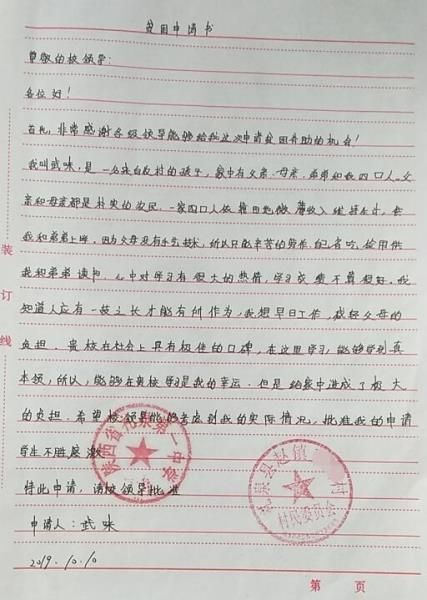 贫困申请书
尊敬的校领导:
各位好!
首先,非常感谢各级领导能够给我这次申请贫困补助的机会!
我叫武咪,是一名来自农村的孩子,家中有父亲、母亲、弟弟和我四口人,父
亲和母亲都是朴实的农民,一家四口人依靠田地微薄收入维持生计,供
我和弟弟上学,因为父母没有手艺技术,所以只能辛苦的劳作,省吃俭用供
我和弟弟读书 心中对学习有很大的热情,学习成绩不算很好,我
知道人应有一技之长才能有所作为,我想早日工作,减轻父母的
负担,贵校在社会上具有极佳的口碑,在这里学习,能够学到真
本领,所以,能够在贵校学习是我的幸运,但是给家中造成了极大
的负担,希望校领导能够考虑到我的实际情况,批准我的申请
学生不胜感激
特此申请,请校领导批准
申请人:武咪
2019.10.10
装订线
陕西省礼泉第一中学
礼泉县赵镇 村
村民委员会
第 页